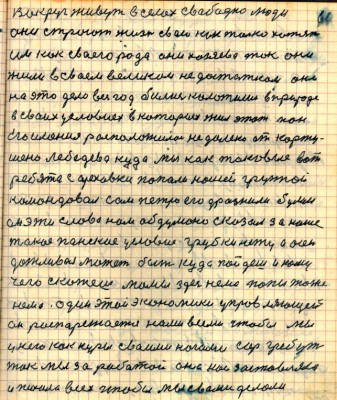 Вокруг живут в селах свабодно люди
они строют жизн сваю как толко хотят
им как сваего рода они хозяева так они
жили в сваем великом не достатком они
на это дело вес год билис колотилис в природе
в сваих условиях в которых жил этот пан
его имения расположилос не далеко от
Лебедева куда мы как таковые вот
ребята с попали нашей групой
камондовал сам петро его дразнили булин
он эти слова нам обдумано сказал за наше
такое панские условие грубки нету а окон
дожливая может быт куда пойдеш и кому
чего скажеш мамы здес нема папы тоже
нема. один этой экономики управляющей
он распарежается нами всеми чтобы мы
у него как куры сваими ногами сор гребут
так мы за работой она нас заставляла
и пихала всех чтобы мы сваими делали